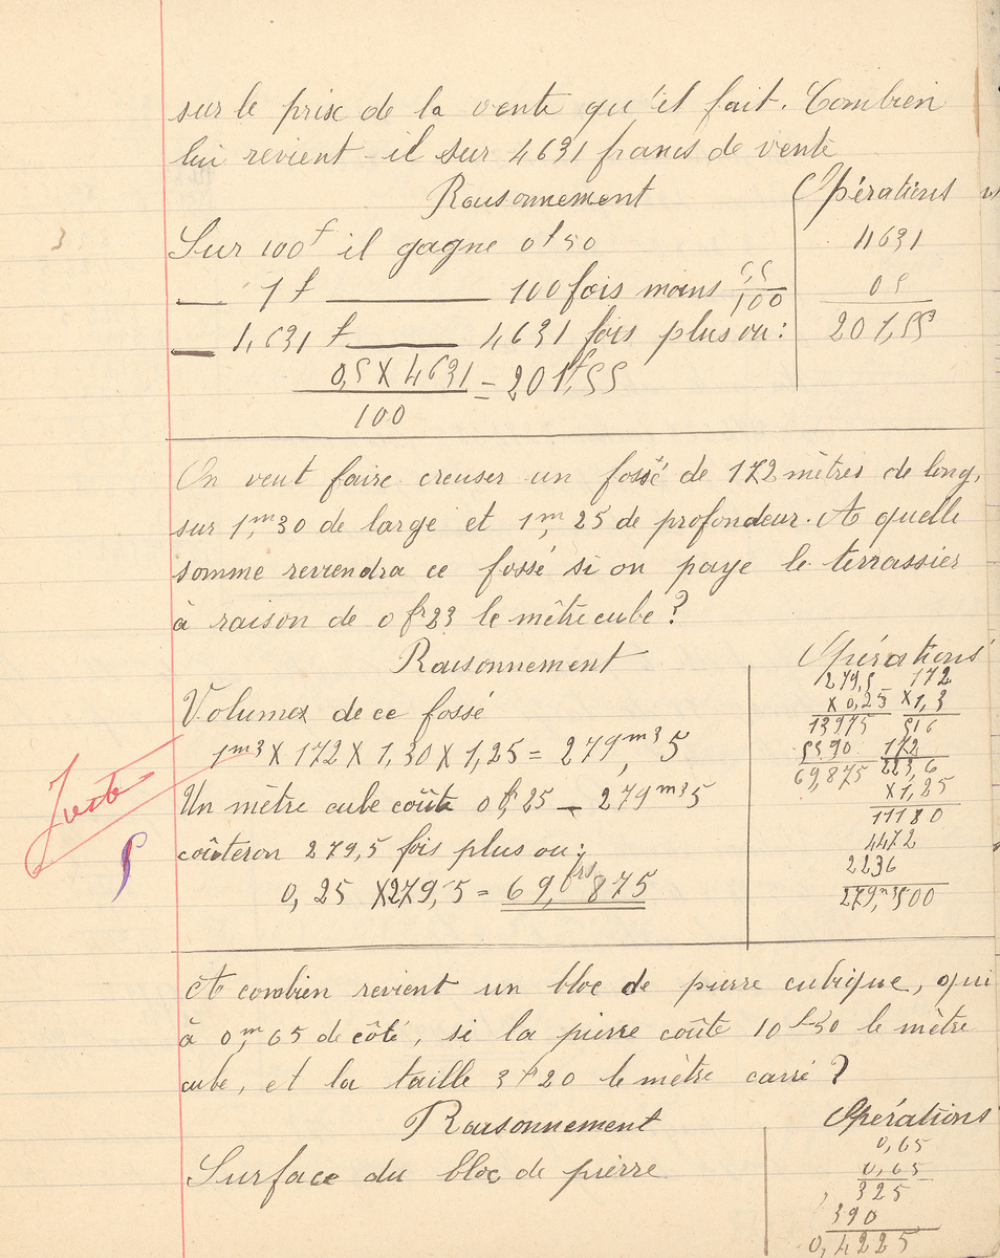 sur le prix de la vente qu'il fait. Combien
lui revient-il sur 4631 francs de vente
Raisonnement
Opérations
Sur 100f il gagne 0f50
4631
— 1f — 100 fois moins 0,5/100
05
— 4,631 f — 4631 fois plus ou:
201,55
0,5 X 4631 = 201f,55
100
On veut faire creuser un fossé de 172 mètres de long,
sur 1m,30 de large et 1m,25 de profondeur. A quelle
somme reviendra ce fossé si on paye le terrassier
à raison de 0fr23 le mètre cube?
Raisonnement
Opérations
Volumes de ce fossé
1m3 X 172 X 1,30 X 1,25 = 279,m3 5
Juste
Un mètre cube coûte 0f,25 — 279m35
coûteron 279,5 fois plus ou:
0,25 X 279,5 = 69,frs875
279,5
X 0,25
13975
5590
69,875
172
X 1,3
516
172
223,6
X 1,25
11180
4472
2236
279,m3500
A combien revient un bloc de pierre cubique, qui
à 0m,65 de côté, si la pierre coûte 10f50 le mètre
cube, et la taille 3f20 le mètre carré?
Raisonnement
Opérations
Surface du bloc de pierre
0,65
0,65
325
390
0,4225